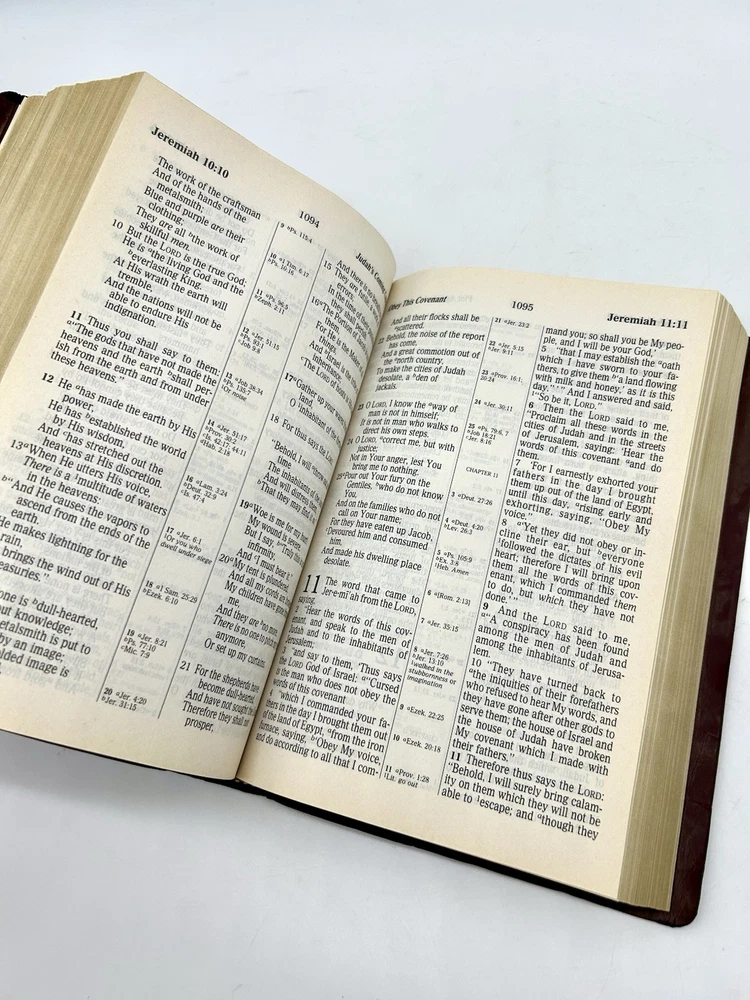 Jeremiah 10:10
1094
The work of the craftsman
And of the hands of the
metalsmith;
Blue and purple are their
clothing;
They are all ᵇthe work of
skillful men.
10 But the LORD is the true God;
He is ᵃthe living God and the
ᵇeverlasting King.
At His wrath the earth will
tremble,
And the nations will not be
able to endure His
indignation.
11 Thus you shall say to them:
ᵃ"The gods that have not made the
heavens and the earth ᵇshall per-
ish from the earth and from under
these heavens."
12 He ᵃhas made the earth by His
power,
He has ᵇestablished the world
by His wisdom,
And ᶜhas stretched out the
heavens at His discretion.
13 ᵃWhen He utters His voice,
There is a ¹multitude of waters
in the heavens:
ᵇ"And He causes the vapors to
ascend from the ends of the
earth.
He makes lightning for the
rain,
brings the wind out of His
treasuries."
one is ᵇdull-hearted,
out knowledge;
metalsmith is put to
by an image;
lded image is
9 ᵃPs. 115:4
10 ᵃ1 Tim. 6:17
ᵇPs. 10:16
11 ᵃPs. 96:5
ᵇZeph. 2:11
12 ᵃJer. 51:15
ᵇPs. 93:1
ᶜJob 9:8
13 ᵃJob 38:34
ᵇPs. 135:7
¹Or noise
14 ᵃJer. 51:17
ᵇProv. 30:2
16 ᵃLam. 3:24
ᵇDeut. 32:9
ᶜIs. 47:4
17 ᵃJer. 6:1
¹Or you who
dwell under siege
18 ᵃ1 Sam. 25:29
ᵇEzek. 6:10
19 ᵃJer. 8:21
ᵇPs. 77:10
ᶜMic. 7:9
20 ᵃJer. 4:20
ᵇJer. 31:15
Judah's
And there is no
15 They are futile, a
errors;
In the
they shall
16 ᵃThe Portion of
them,
For He is the
And Israel is the
inheritance;
ᶜThe LORD of
17 ᵃGather up your
land,
O ¹inhabitant of the
18 For thus says the LORD
"Behold, I will
time
The inhabitants of
And will distress
ᵇThat they may find it
19 ᵃWoe is me for my
My wound is severe.
But I say, ᵇ"Truly this
infirmity,
And ᶜI must bear it."
20 ᵃMy tent is plundered,
And all my cords are
My children have gone
me,
And they are ᵇno more.
There is no one to pitch
anymore,
Or set up my curtains.
21 For the shepherds have
become dull-hearted,
And have not sought the
Therefore they shall not
prosper,
Obey This Covenant
1095
Jeremiah 11:11
And all their flocks shall be
ᵃscattered.
22 Behold, the noise of the report
has come,
And a great commotion out of
the ᵃnorth country,
To make the cities of Judah
desolate, a ᵇden of
jackals.
23 O LORD, I know the ᵃway of
man is not in himself;
It is not in man who walks to
direct his own steps.
24 O LORD, ᵃcorrect me, but with
justice;
Not in Your anger, lest You
bring me to nothing.
25 ᵃPour out Your fury on the
Gentiles, ᵇwho do not know
You,
And on the families who do not
call on Your name;
For they have eaten up Jacob,
ᶜDevoured him and consumed
him,
And made his dwelling place
desolate.
11 The word that came to
Jer·e·mī´ah from the LORD,
saying,
2 "Hear the words of this cov-
enant, and speak to the men of
Judah and to the inhabitants of
Jerusalem;
3 and say to them, 'Thus says
the LORD God of Israel: ᵃ"Cursed
is the man who does not obey the
words of this covenant
4 "which I commanded your fa-
thers in the day I brought them out
of the land of Egypt, ᵃfrom the iron
furnace, saying, ᵇ'Obey My voice,
and do according to all that I com-
21 ᵃJer. 23:2
22 ᵃJer. 5:15
ᵇJer. 9:11
23 ᵃProv. 16:1;
20:24
24 ᵃJer. 30:11
25 ᵃPs. 79:6, 7
ᵇJob 18:21
ᶜJer. 8:16
CHAPTER 11
3 ᵃDeut. 27:26
4 ᵃDeut. 4:20
ᵇLev. 26:3
5 ᵃPs. 105:9
ᵇEx. 3:8
¹Heb. Amen
6 ᵃ[Rom. 2:13]
7 ᵃJer. 35:15
8 ᵃJer. 7:26
ᵇJer. 13:10
¹walked in the
stubbornness or
imagination
9 ᵃEzek. 22:25
10 ᵃEzek. 20:18
11 ᵃProv. 1:28
¹Lit. go out
mand you; so shall you be My peo-
ple, and I will be your God,'
5 "that I may establish the ᵃoath
which I have sworn to your fa-
thers, to give them ᵇ'a land flowing
with milk and honey,' as it is this
day." ' " And I answered and said,
¹"So be it, LORD."
6 Then the LORD said to me,
"Proclaim all these words in the
cities of Judah and in the streets
of Jerusalem, saying: 'Hear the
words of this covenant ᵃand do
them.
7 'For I earnestly exhorted your
fathers in the day I brought
them up out of the land of Egypt,
until this day, ᵃrising early and
exhorting, saying, "Obey My
voice."
8 ᵃ"Yet they did not obey or in-
cline their ear, but ᵇeveryone
¹followed the dictates of his evil
heart; therefore I will bring upon
them all the words of this cov-
enant, which I commanded them
to do, but which they have not
done.' "
9 And the LORD said to me,
ᵃ"A conspiracy has been found
among the men of Judah and
among the inhabitants of Jerusa-
lem.
10 "They have turned back to
ᵃthe iniquities of their forefathers
who refused to hear My words, and
they have gone after other gods to
serve them; the house of Israel and
the house of Judah have broken
My covenant which I made with
their fathers."
11 Therefore thus says the LORD:
"Behold, I will surely bring calam-
ity on them which they will not be
able to ¹escape; and ᵃthough they